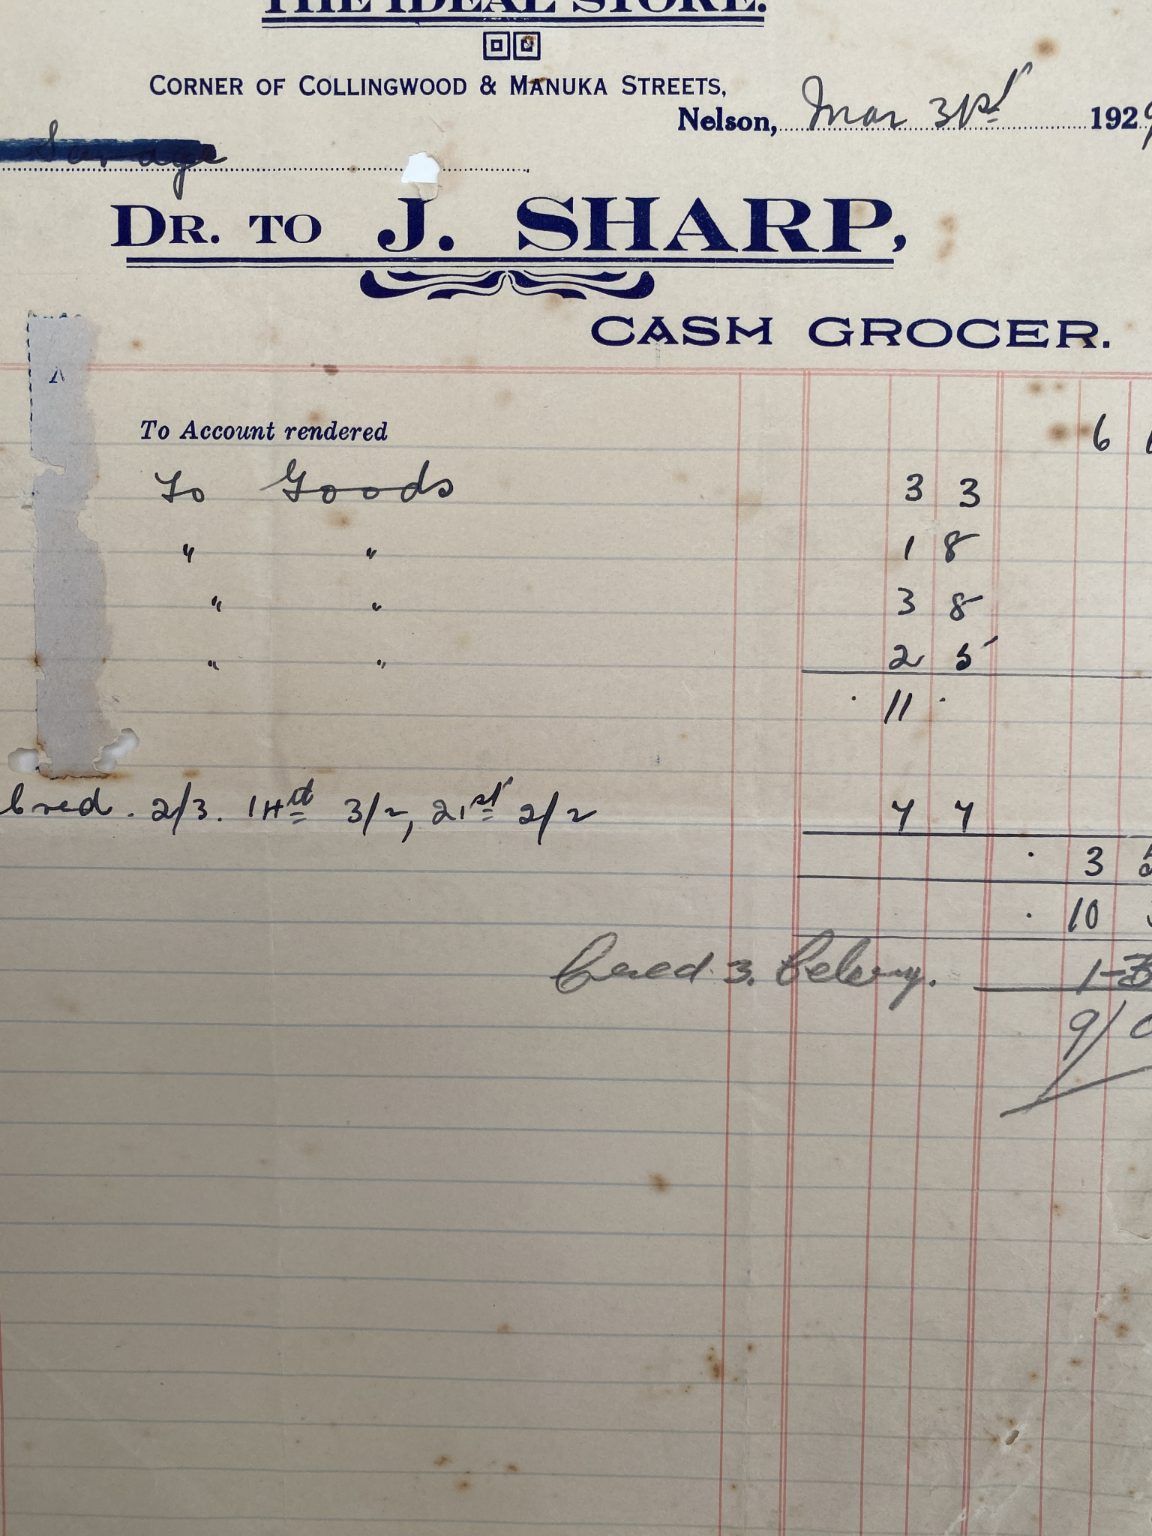 THE IDEAL STORE.
CORNER OF COLLINGWOOD & MANUKA STREETS,
Nelson, Mar 31st 1929
Savage
DR. TO J. SHARP,
CASH GROCER.
To Account rendered 6
To Goods 3 3
" " 1 8
" " 3 8
" " 2 5
11
2/3. 14th 3/2, 21st 2/2 7 7
3 5
10
Cred. 3. Celery. 1-3
9/